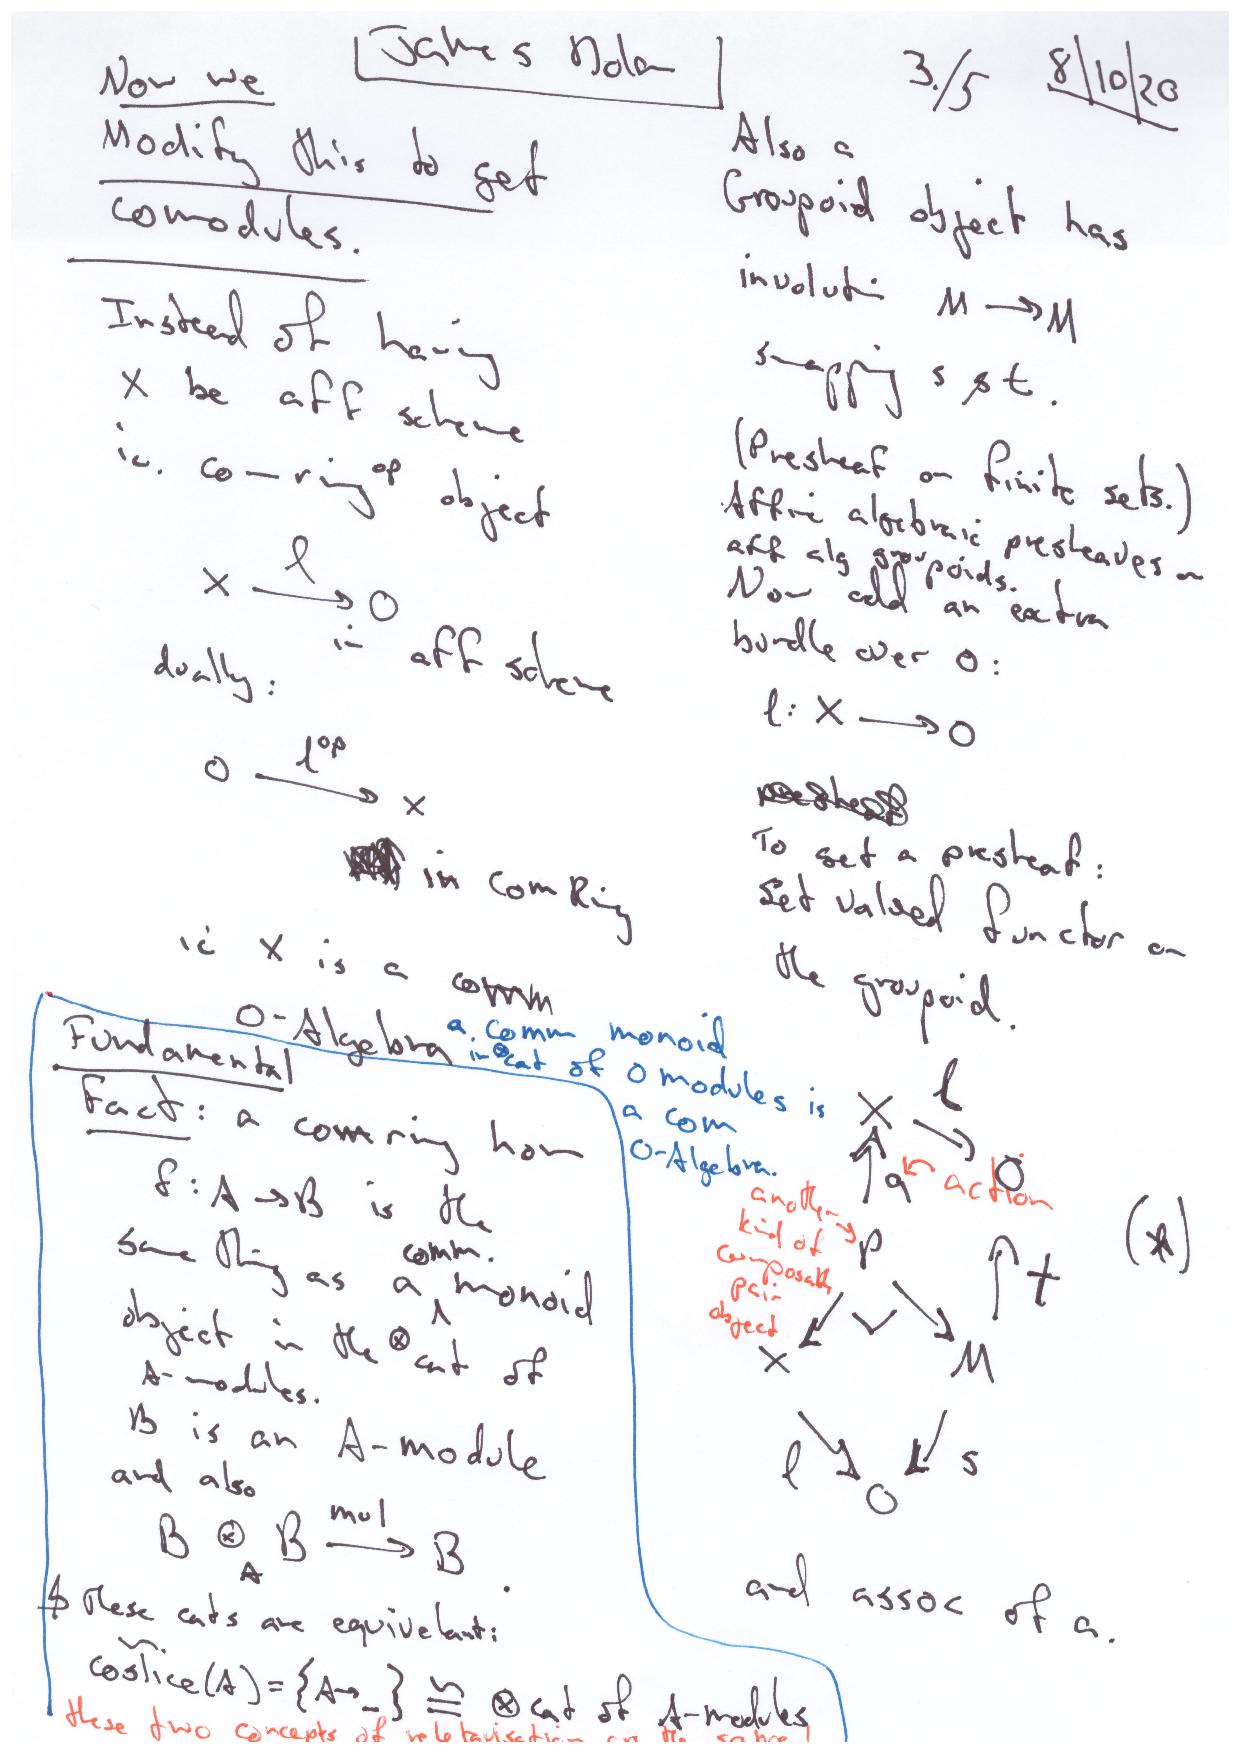 James Dolan
3./5 8/10/20
Now we
Modify this to get
comodules.
Instead of having
X be aff scheme
ie. com-ring^op object
X —l→ O
in aff scheme
dually:
O —l^op→ X
in ComRing
ie X is a comm
O-Algebra
a comm monoid
in ⊗cat of O modules is
a com
O-Algebra.
Fundamental
Fact: a comm ring hom
f: A → B is the
same thing as a comm. monoid
object in the ⊗ cat of
A-modules.
B is an A-module
and also
B ⊗_A B —mul→ B.
& these cats are equivelant:
coslice(A) = {A→_} ≅ ⊗cat of A-modules
these two concepts of reletavisation are the same!
Also a
Groupoid object has
involution M → M
swapping s & t.
(Presheaf on finite sets.)
Affine algebraic presheaves on
aff alg groupoids.
Now add an extra
bundle over O:
l: X → O
To get a presheaf:
Set valued functor on
the groupoid.
X l
O
a action
another
kind of
composable
pair
object
P
t
(*)
X M
l s
O
and assoc of a.